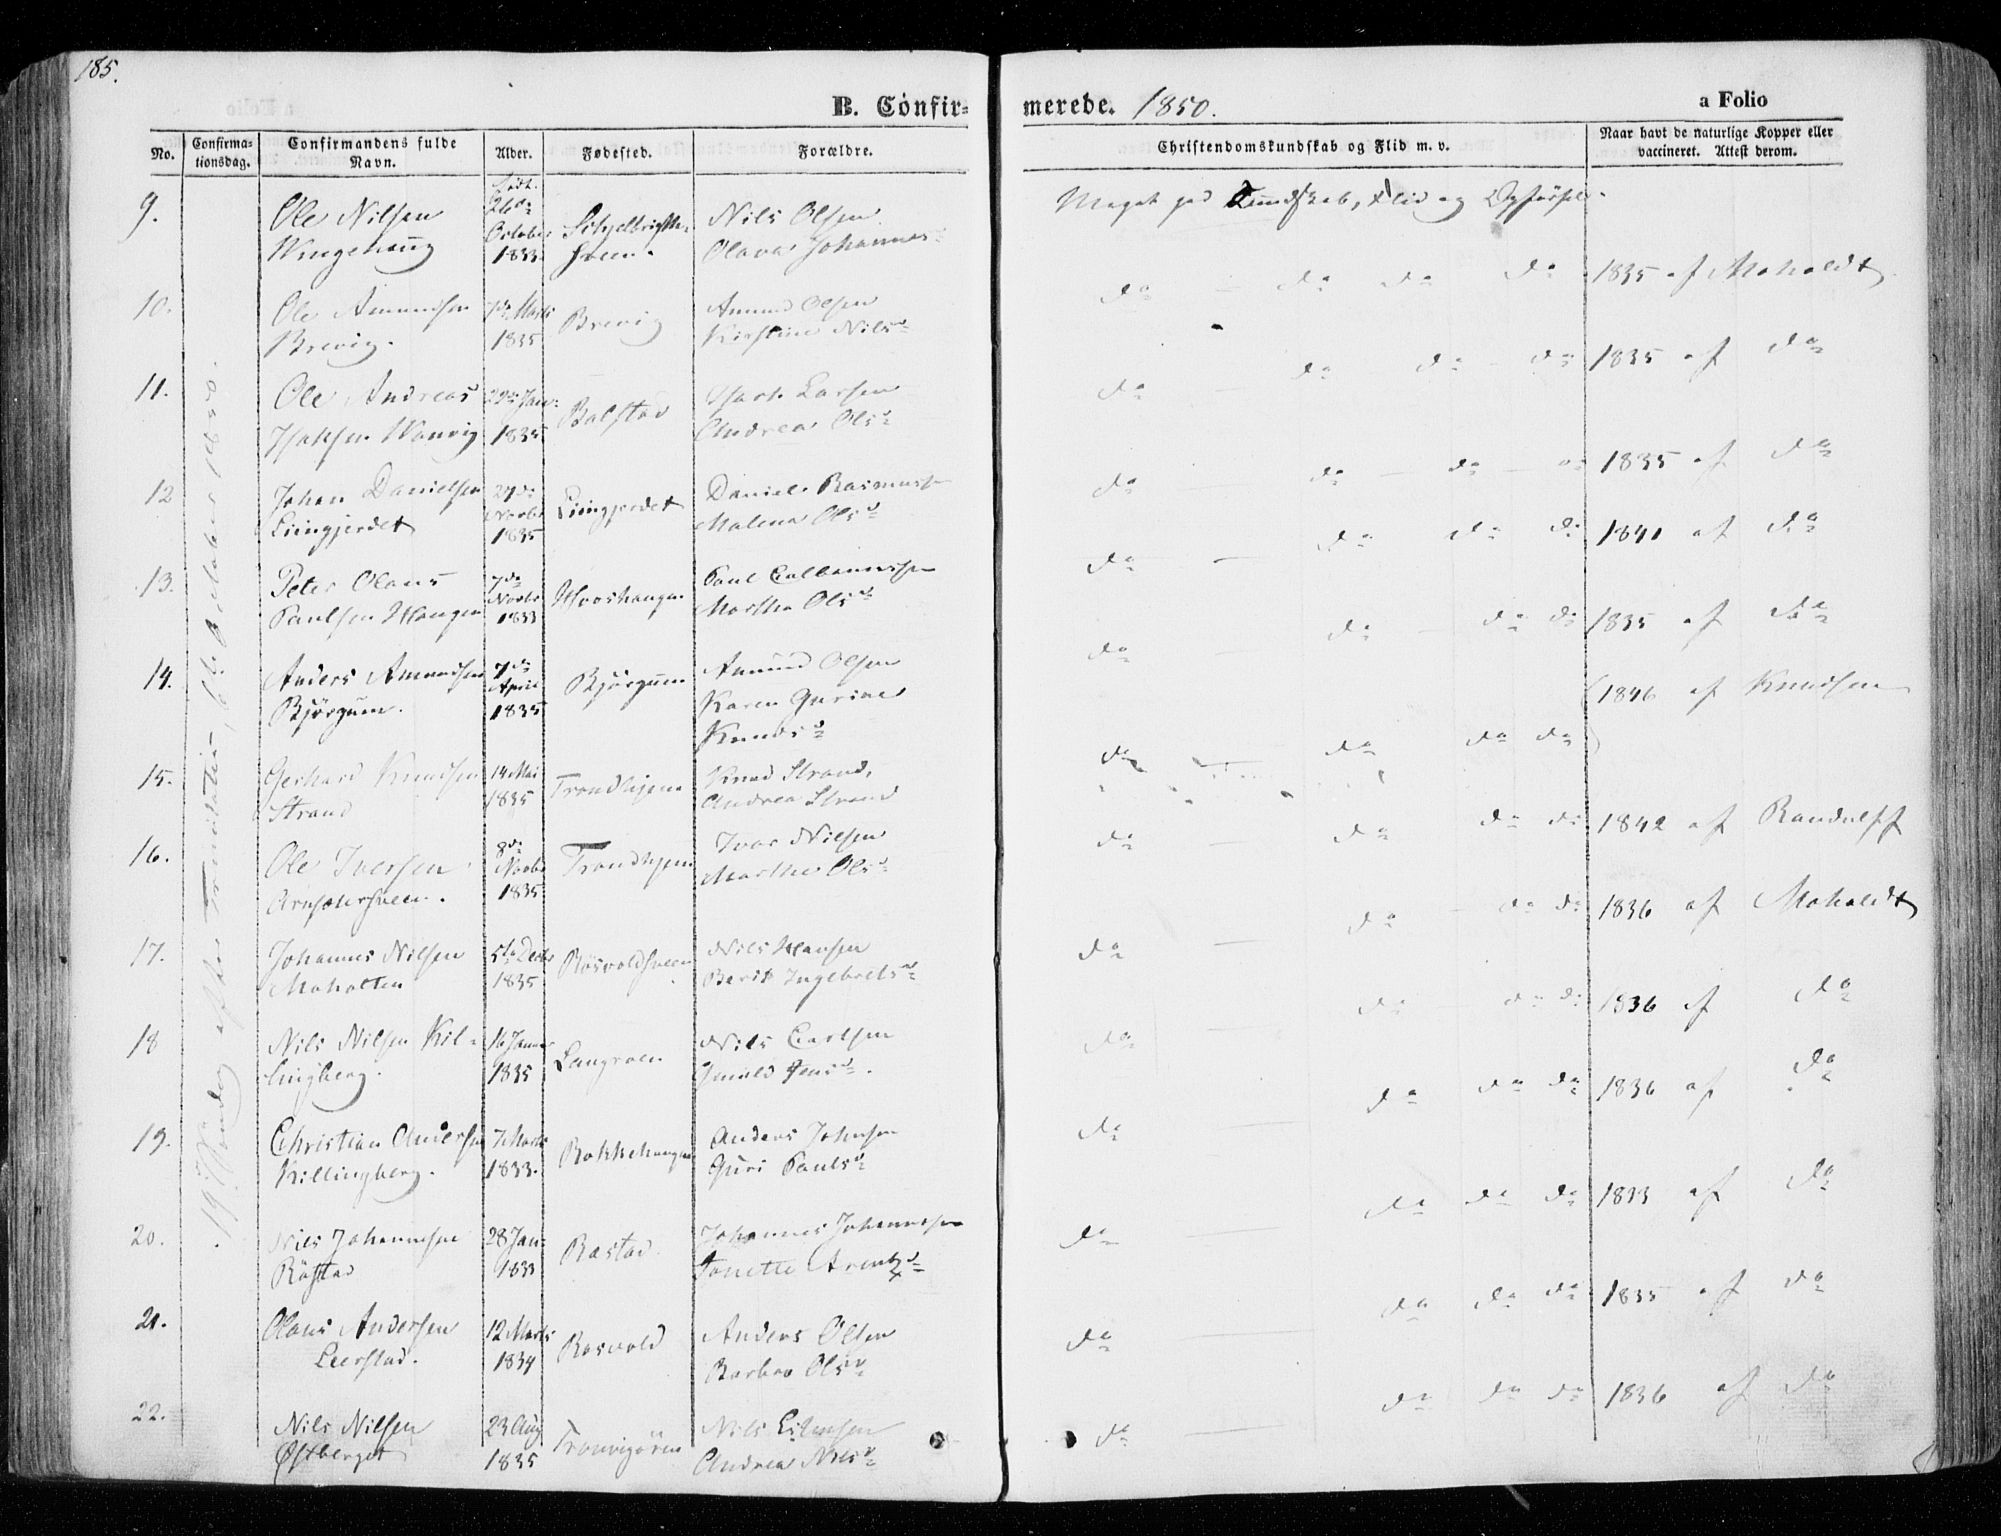 185.
B. Confir-
merede. 1850.
a Folio
No.
Confirma-
tionsdag.
Confirmandens fulde
Navn.
Alder.
Fødested.
Forældre.
Christendomskundskab og Flid m. v.
Naar havt de naturlige Kopper eller
vaccineret. Attest derom.
19de Søndag efter Trinitatis, October 1850.
9. Ole Nilsen
født
26de
October
1833
Nils Olsen
Olava Johannes
Meget god Kundskab, Flid og Opførsel.
1835 af Moholdt
10. Ole Amundsen
Brevig.
Marts
1835
Brevig
Amund Olsen
Kirstine Nilsd
do — do do do
1835 af do
11. Ole Andreas
Isaksen Wanvig
22de Jan:
1835
Balstad
Isach Larsen
Andrea Olsd
do — do do do
1835 af do
12 Johan Danielsen
Liingjerdet
27de
Novbr
1835
Liingjerdet
Daniel Rasmussen
Malena Olsd
do — do do do
1840 af do
13. Peter Olaus
Paulsen Haugen
7de
Novbr
1833
Paul
Martha Olsd
do — do do do
1835 af do
14. Anders Amundsen
Bjørgum.
7de
April
1835
Bjørgum
Amund Olsen
Karen Gurine
Knudsd
do — do do do
1846 af Knudsen
15. Gerhard Knudsen
Strand
14 Mai
1835
Trondhjem
Knud Strand,
Andrea Strand
do — do do do
1842 af Randulff
16. Ole Iversen
8de
Novbr
1835
Trondhjem
Ivar Nilsen
Marthe Olsd
do — do do do
1836 af Moholdt
17. Johannes Nilsen
Moholten
5te Decbr
1835
Rösvoldsveen
Nils Hansen
Berit Ingebretsd
do — do do do
1836 af do
18 Nils Nilsen Kil-
lingberg.
16 Januar
1835
Langroen
Nils Carlsen
Gunild Jensd.
do — do do do
1836 af do
19. Christian Andersen
Killingberg.
7 Marts
1833.
Rokkehaugen
Anders Johnsen
Guri Paulsd
do — do do do
1833 af do
20. Nils Johannesen
Röstad
28 Jan:
1833
Rostad
Johannes Johannesen
Jonette Arentzd
do — do do do
1835 af do
21. Olaus Andersen
Leerstad.
12 Marts
1834
Rosvold
Anders Olsen
Barbro Olsd
do — do do do
1836 af do
22. Nils Nilsen
Østberget
23 Aug
1835
Tronvigören
Nils
Andrea Nilsd
do —